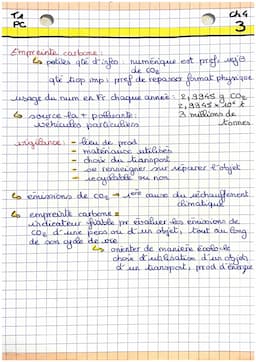 Te
PC
Ch 4
3
Empreinte carbone:
↳ petites qté d'infos : numérique est préf. 10g
de CO2
qté trop imp : préf de repasser format physique
usage du num en Fr chaque année : 2,9945 g CO2
2,9945 × 10⁶ t
↳ source la + polluante : 3 millions de
véhicules particuliers tonnes
vigilance : - lieu de prod
- matériaux utilisés
- choix du transport
- se renseigner sur réparer l'objet
- recyclable ou non
↳ émissions de CO2 → 1ère cause du réchauffement
climatique
↳ empreinte carbone =
indicateur fiable pr évaluer les émissions de
CO2 d'une pers ou d'un objet, tout au long
de son cycle de vie
↳ orienter de manière écolo le
choix d'utilisation d'un objet,
d'un transport, prod d'énergie